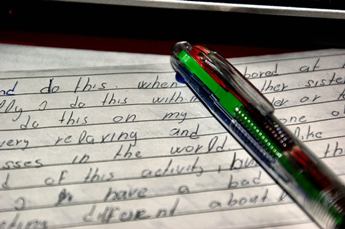 nd do this when bored at
lly I do this with other sister
do this on my or
very relaxing and one o
sses in the world the
d of this activity, bu
I have a bad
different about